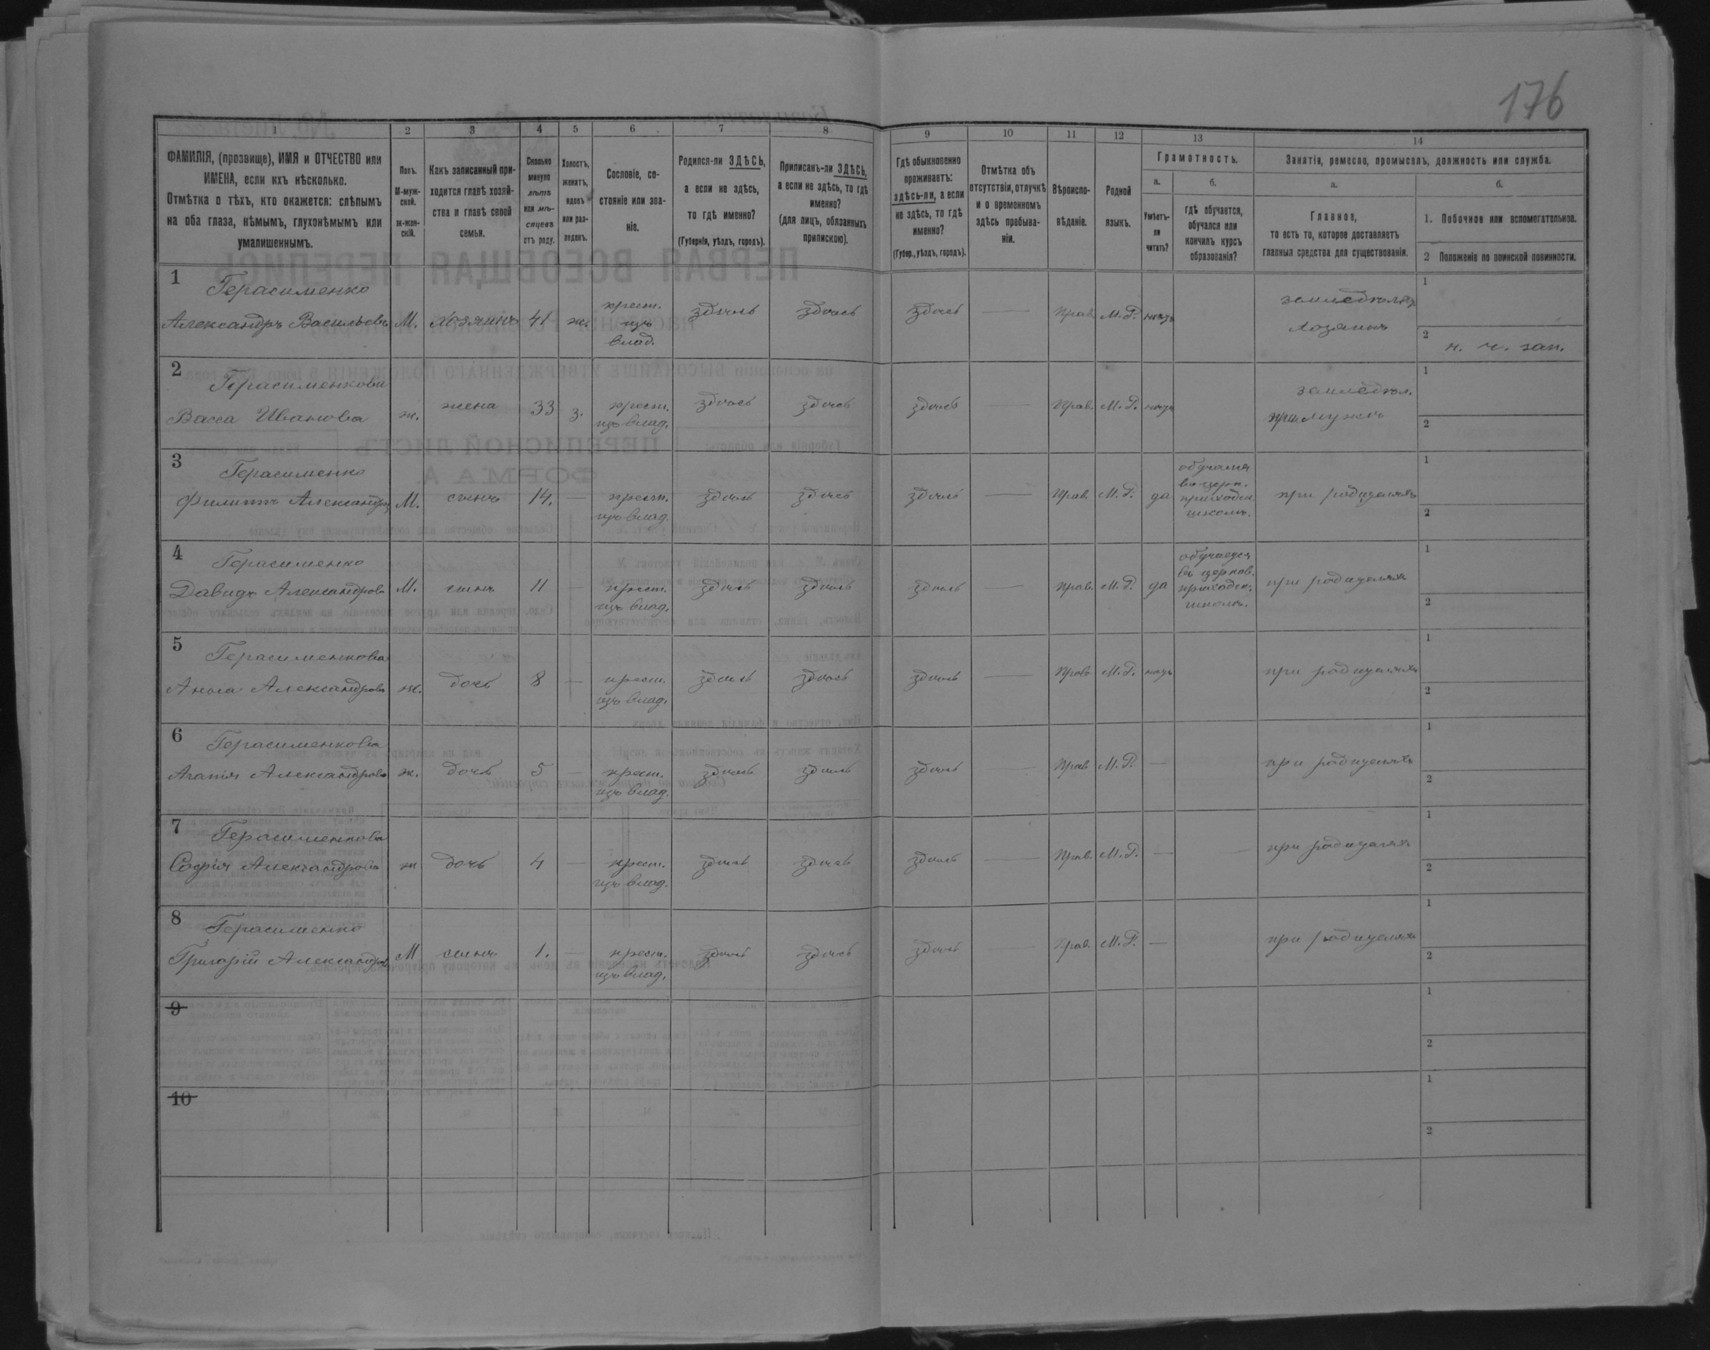 176
1 2 3 4 5 6 7 8 9 10 11 12 13 14
ФАМИЛІЯ, (прозвище), ИМЯ и ОТЧЕСТВО или
ИМЕНА, если ихъ нѣсколько.
Отмѣтка о тѣхъ, кто окажется: слѣпымъ
на оба глаза, нѣмымъ, глухонѣмымъ или
умалишеннымъ.
Полъ.
М-муж-
ской.
ж-жен-
скій.
Какъ записанный при-
ходится главѣ хозяй-
ства и главѣ своей
семьи.
Сколько
минуло
лѣтъ
или мѣ-
сяцевъ
отъ роду.
Холостъ,
женатъ,
вдовъ
или раз-
веденъ.
Сословіе, со-
стояніе или зва-
ніе.
Родился-ли ЗДѢСЬ,
а если не здѣсь,
то гдѣ именно?
(Губернія, уѣздъ, городъ).
Приписанъ-ли ЗДѢСЬ,
а если не здѣсь, то гдѣ
именно?
(для лицъ, обязанныхъ
припискою).
Гдѣ обыкновенно
проживаетъ:
здѣсь-ли, а если
не здѣсь, то гдѣ
именно?
(Губер., уѣздъ, городъ).
Отмѣтка объ
отсутствіи, отлучкѣ
и о временномъ
здѣсь пребыва-
ніи.
Вѣроиспо-
вѣданіе.
Родной
языкъ.
Грамотность.
а. б.
Умѣетъ-
ли
читать?
гдѣ обучается,
обучался или
кончилъ курсъ
образованія?
Занятія, ремесло, промыселъ, должность или служба.
а. б.
Главное,
то есть то, которое доставляетъ
главныя средства для существованія.
1. Побочное или вспомогательное.
2 Положеніе по воинской повинности.
1
Герасименко
Александръ Васильевъ М. Хозяинъ 41 ж. крест. изъ влад. здѣсь здѣсь здѣсь — Прав. М.Р. нѣтъ
хозяинъ
1
2 н. ч. зап.
2
Герасименкова
Васса Иванова ж. жена 33 з. крест. изъ влад. здѣсь здѣсь здѣсь — Прав. М.Р. нѣтъ
земледѣл.
при мужѣ
1
2
3
Герасименко
Филиппъ Александр. М. сынъ 14. — крест. изъ влад. здѣсь здѣсь здѣсь — Прав. М.Р. да
при родителяхъ
1
2
4
Герасименко
Давидъ Александровъ М. сынъ 11 — крест. изъ влад. здѣсь здѣсь здѣсь — Прав. М.Р. да
обучается
въ церков.
приходск.
школѣ.
при родителяхъ
1
2
5
Герасименкова
Анна Александрова ж. дочь 8 — крест. изъ влад. здѣсь здѣсь здѣсь — Прав. М.Р. нѣтъ
при родителяхъ
1
2
6
Герасименкова
Агапія Александрова ж. дочь 5 — крест. изъ влад. здѣсь здѣсь здѣсь — Прав. М.Р. —
при родителяхъ
1
2
7
Герасименкова
Софія Александрова ж дочь 4 — крест. изъ влад. здѣсь здѣсь здѣсь — Прав. М.Р. —
при родителяхъ
1
2
8
Герасименко
Григорій Александров М сынъ 1. — крест. изъ влад. здѣсь здѣсь здѣсь — Прав. М.Р. —
при родителяхъ
1
2
9
1
2
10
1
2